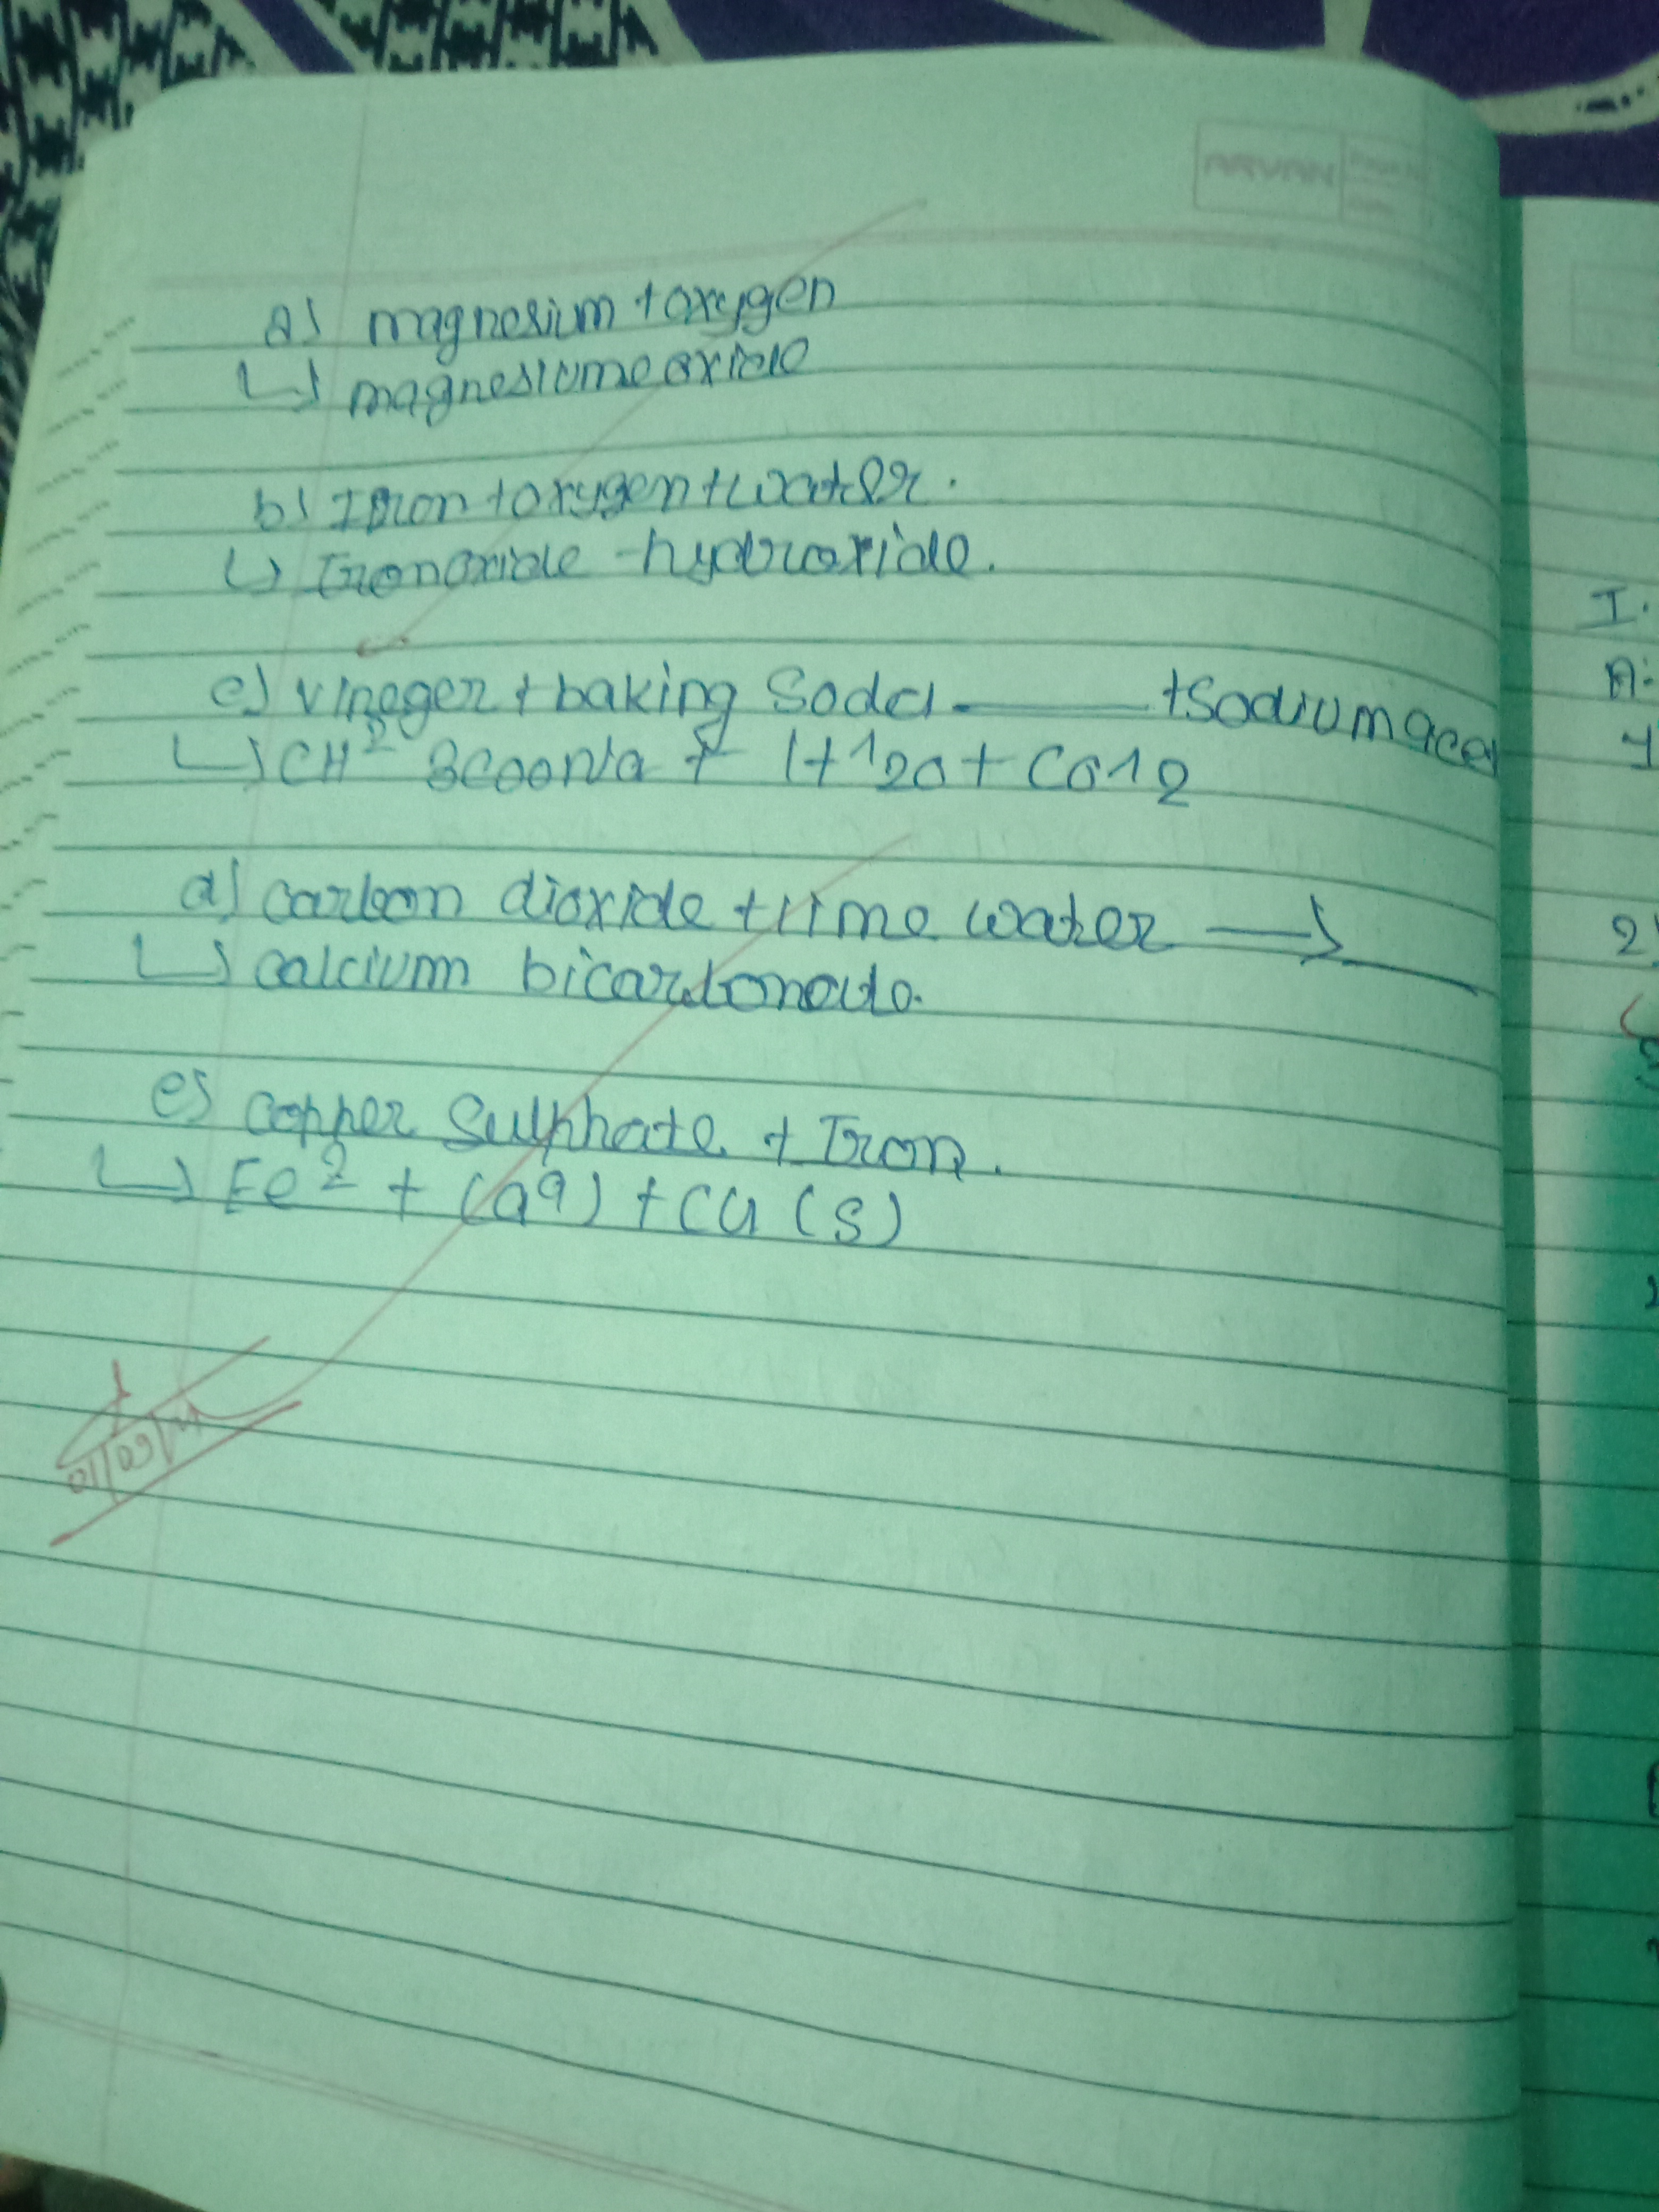 ARVAN
a) magnesium + oxygen
↳ magnesiume oxide
b) Iron + oxygen + water.
↳ Iron oxide - hydroxide.
c) vineger + baking Soda ——— + Sodium ace
↳ CH² 3COONa + H^1 20 + CO^1 2
d) carbon dioxide + lime water ⟶
↳ calcium bicarbonate.
e) copper Sulphate + Iron.
↳ Fe² + (aq) + Cu (s)
I.
A:
2)